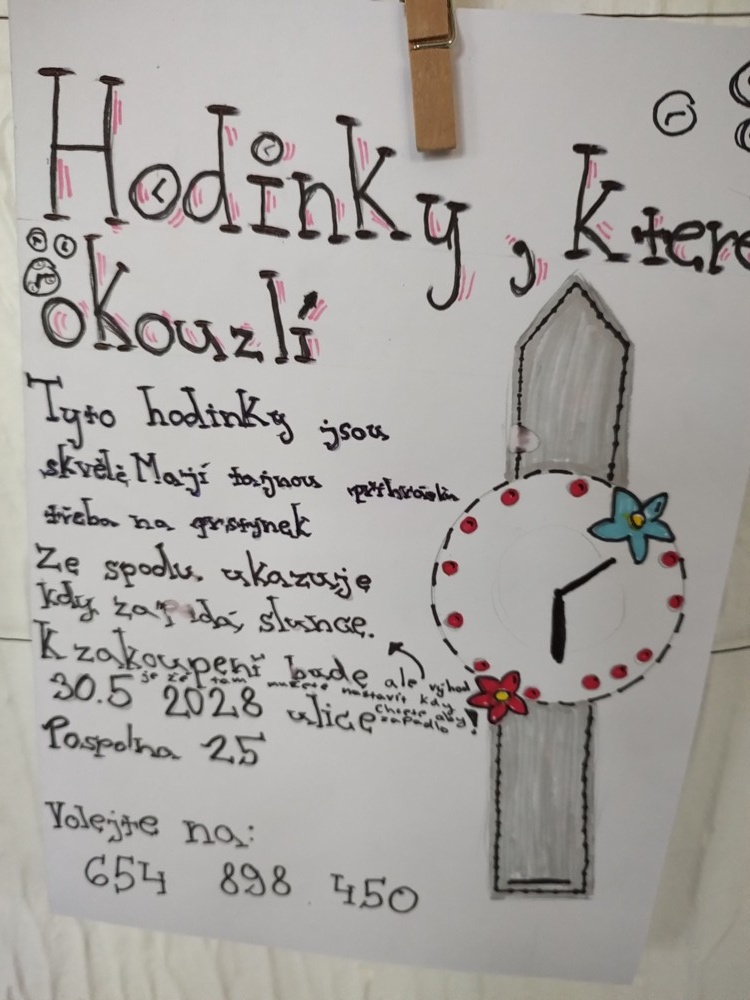 Hodinky, které
okouzlí
Tyto hodinky jsou
skvělé Mají tajnou přihrádku
třeba na prstýnek
Ze spodu ukazuje
kdy zapadá slunce.
K zakoupení bude
ale výhod
je že tam můžete nastavit kdy
chcete aby
zapadlo!
30.5 2028 ulice
Pospolna 25
Volejte na:
654 898 450